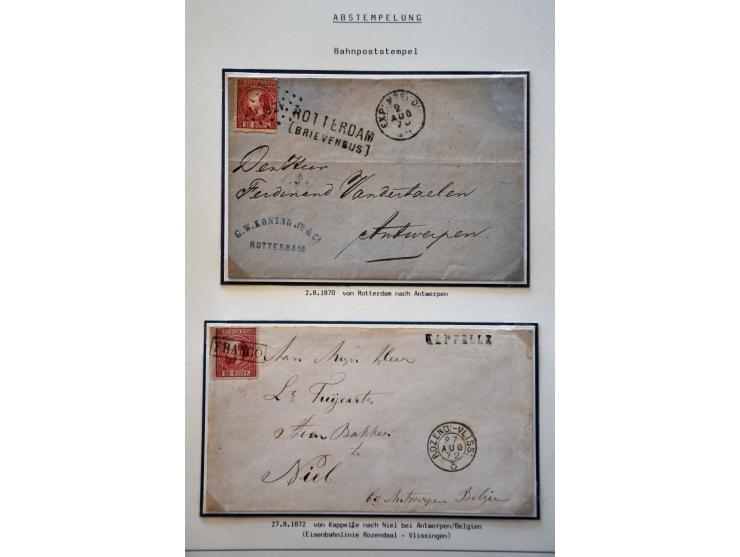 ABSTEMPELUNG
Bahnpoststempel
ROTTERDAM
[BRIEVENBUS]
2
AUG
70
Den Heer
Ferdinand Vandertaelen
Antwerpen.
G.W.KONING JR & Co
ROTTERDAM
2.8.1870 von Rotterdam nach Antwerpen
FRANCO
KAPPELLE
Aan Mijn Heer
ROZEND:-VLISS:
27
AUG
72
3
te
Niel
by Antwerpen Belgie
27.8.1872 von Kappelle nach Niel bei Antwerpen/Belgien
(Eisenbahnlinie Rozendaal - Vlissingen)